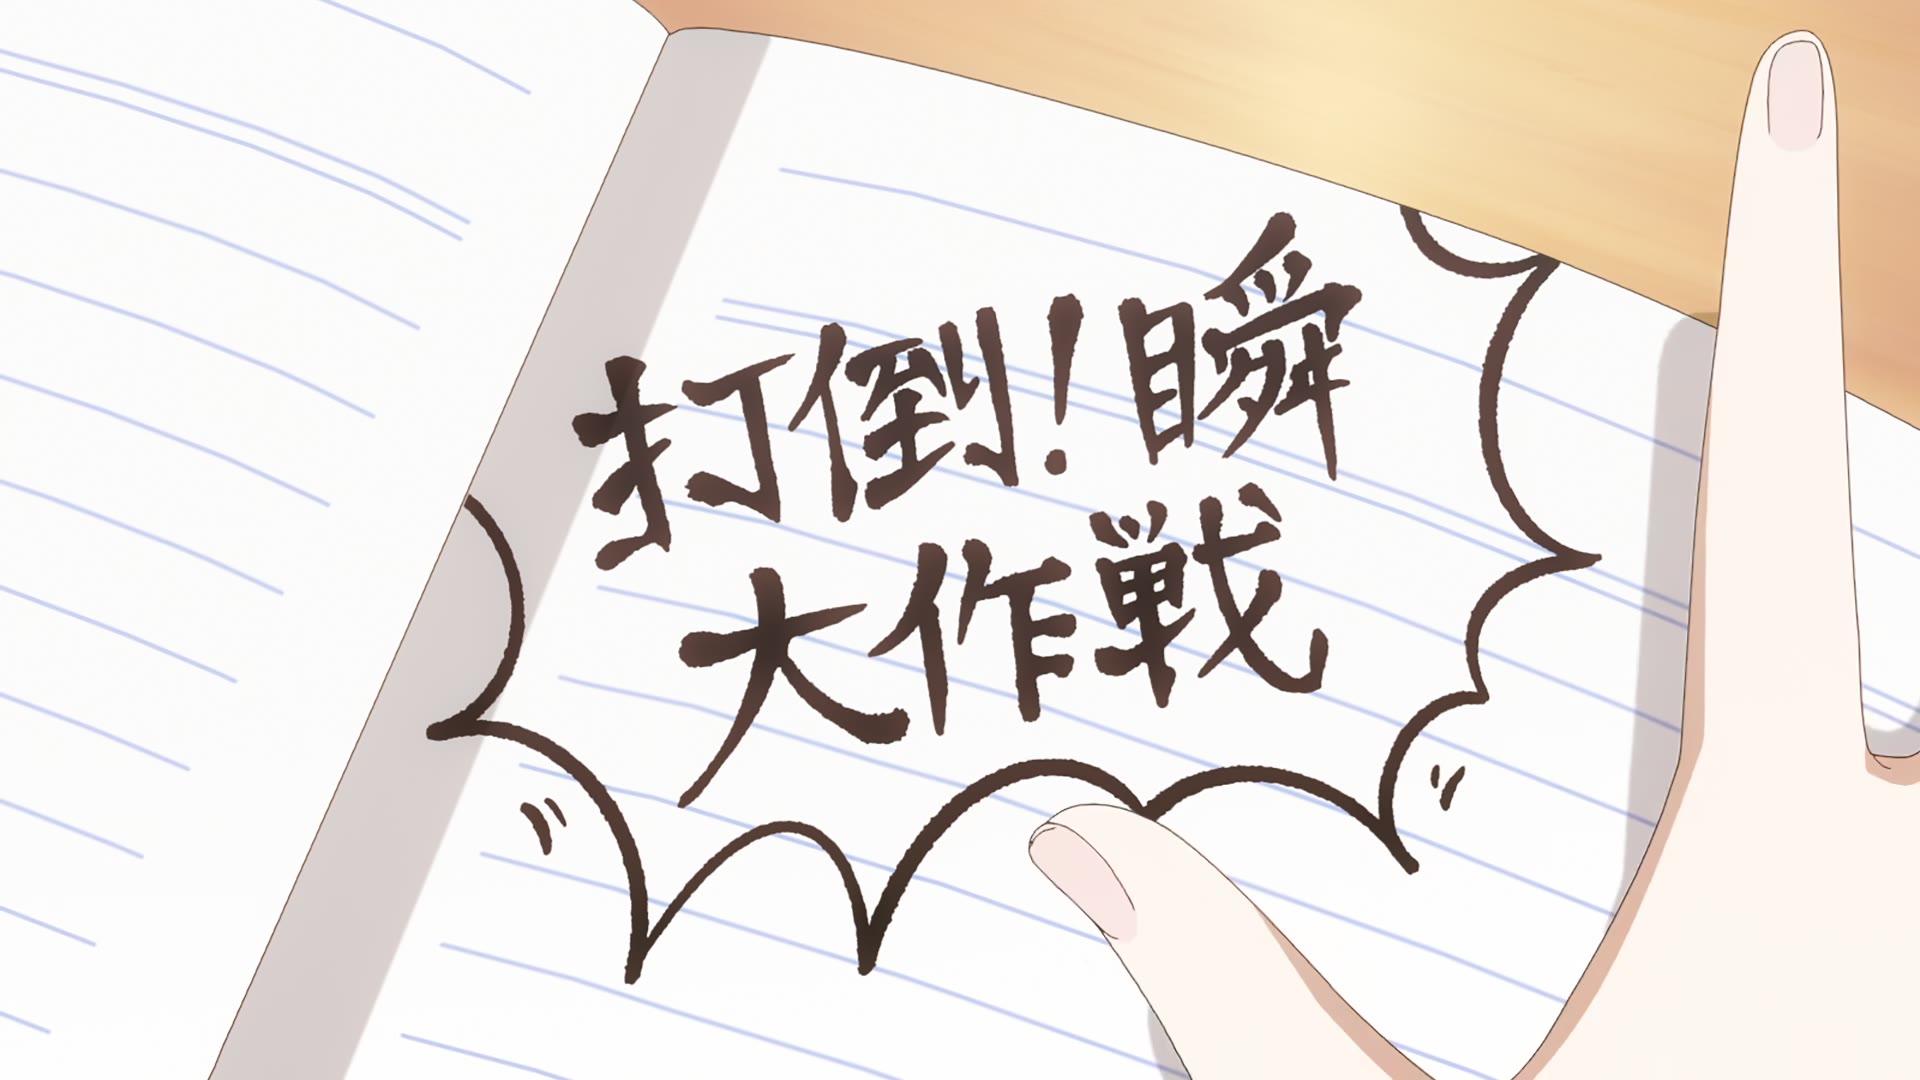 打倒!瞬
大作戦